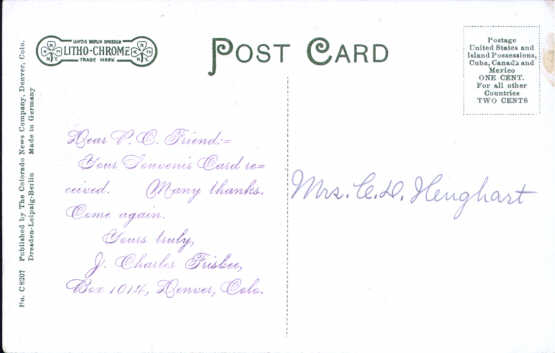 LITHO-CHROME
TRADE MARK
POST CARD
Postage
United States and
Island Possessions,
Cuba, Canada and
Mexico
ONE CENT.
For all other
Countries
TWO CENTS
No. C8207 Published by The Colorado News Company, Denver, Colo.
Dresden-Leipzig-Berlin Made in Germany
Dear P. C. Friend:=
Your Souvenir Card re=
ceived. Many thanks.
Come again.
Yours truly,
J. Charles Frisbee,
Box 1014, Denver, Colo.
Mrs. C. D. Henghart